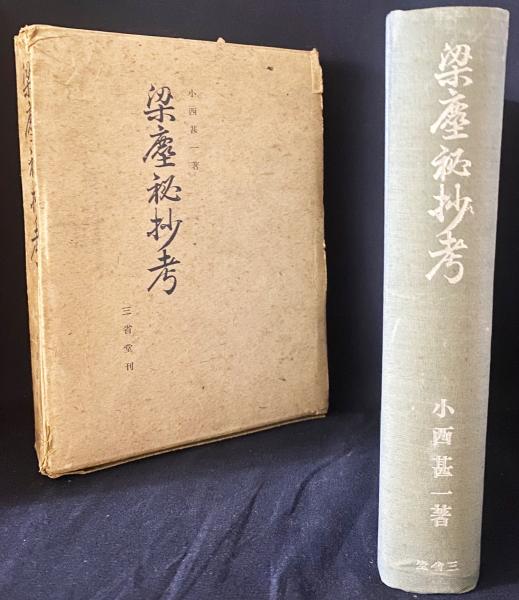 小西甚一著
梁塵秘抄考
三省堂刊
梁塵秘抄考
梁塵秘抄考
小西甚一著
三省堂